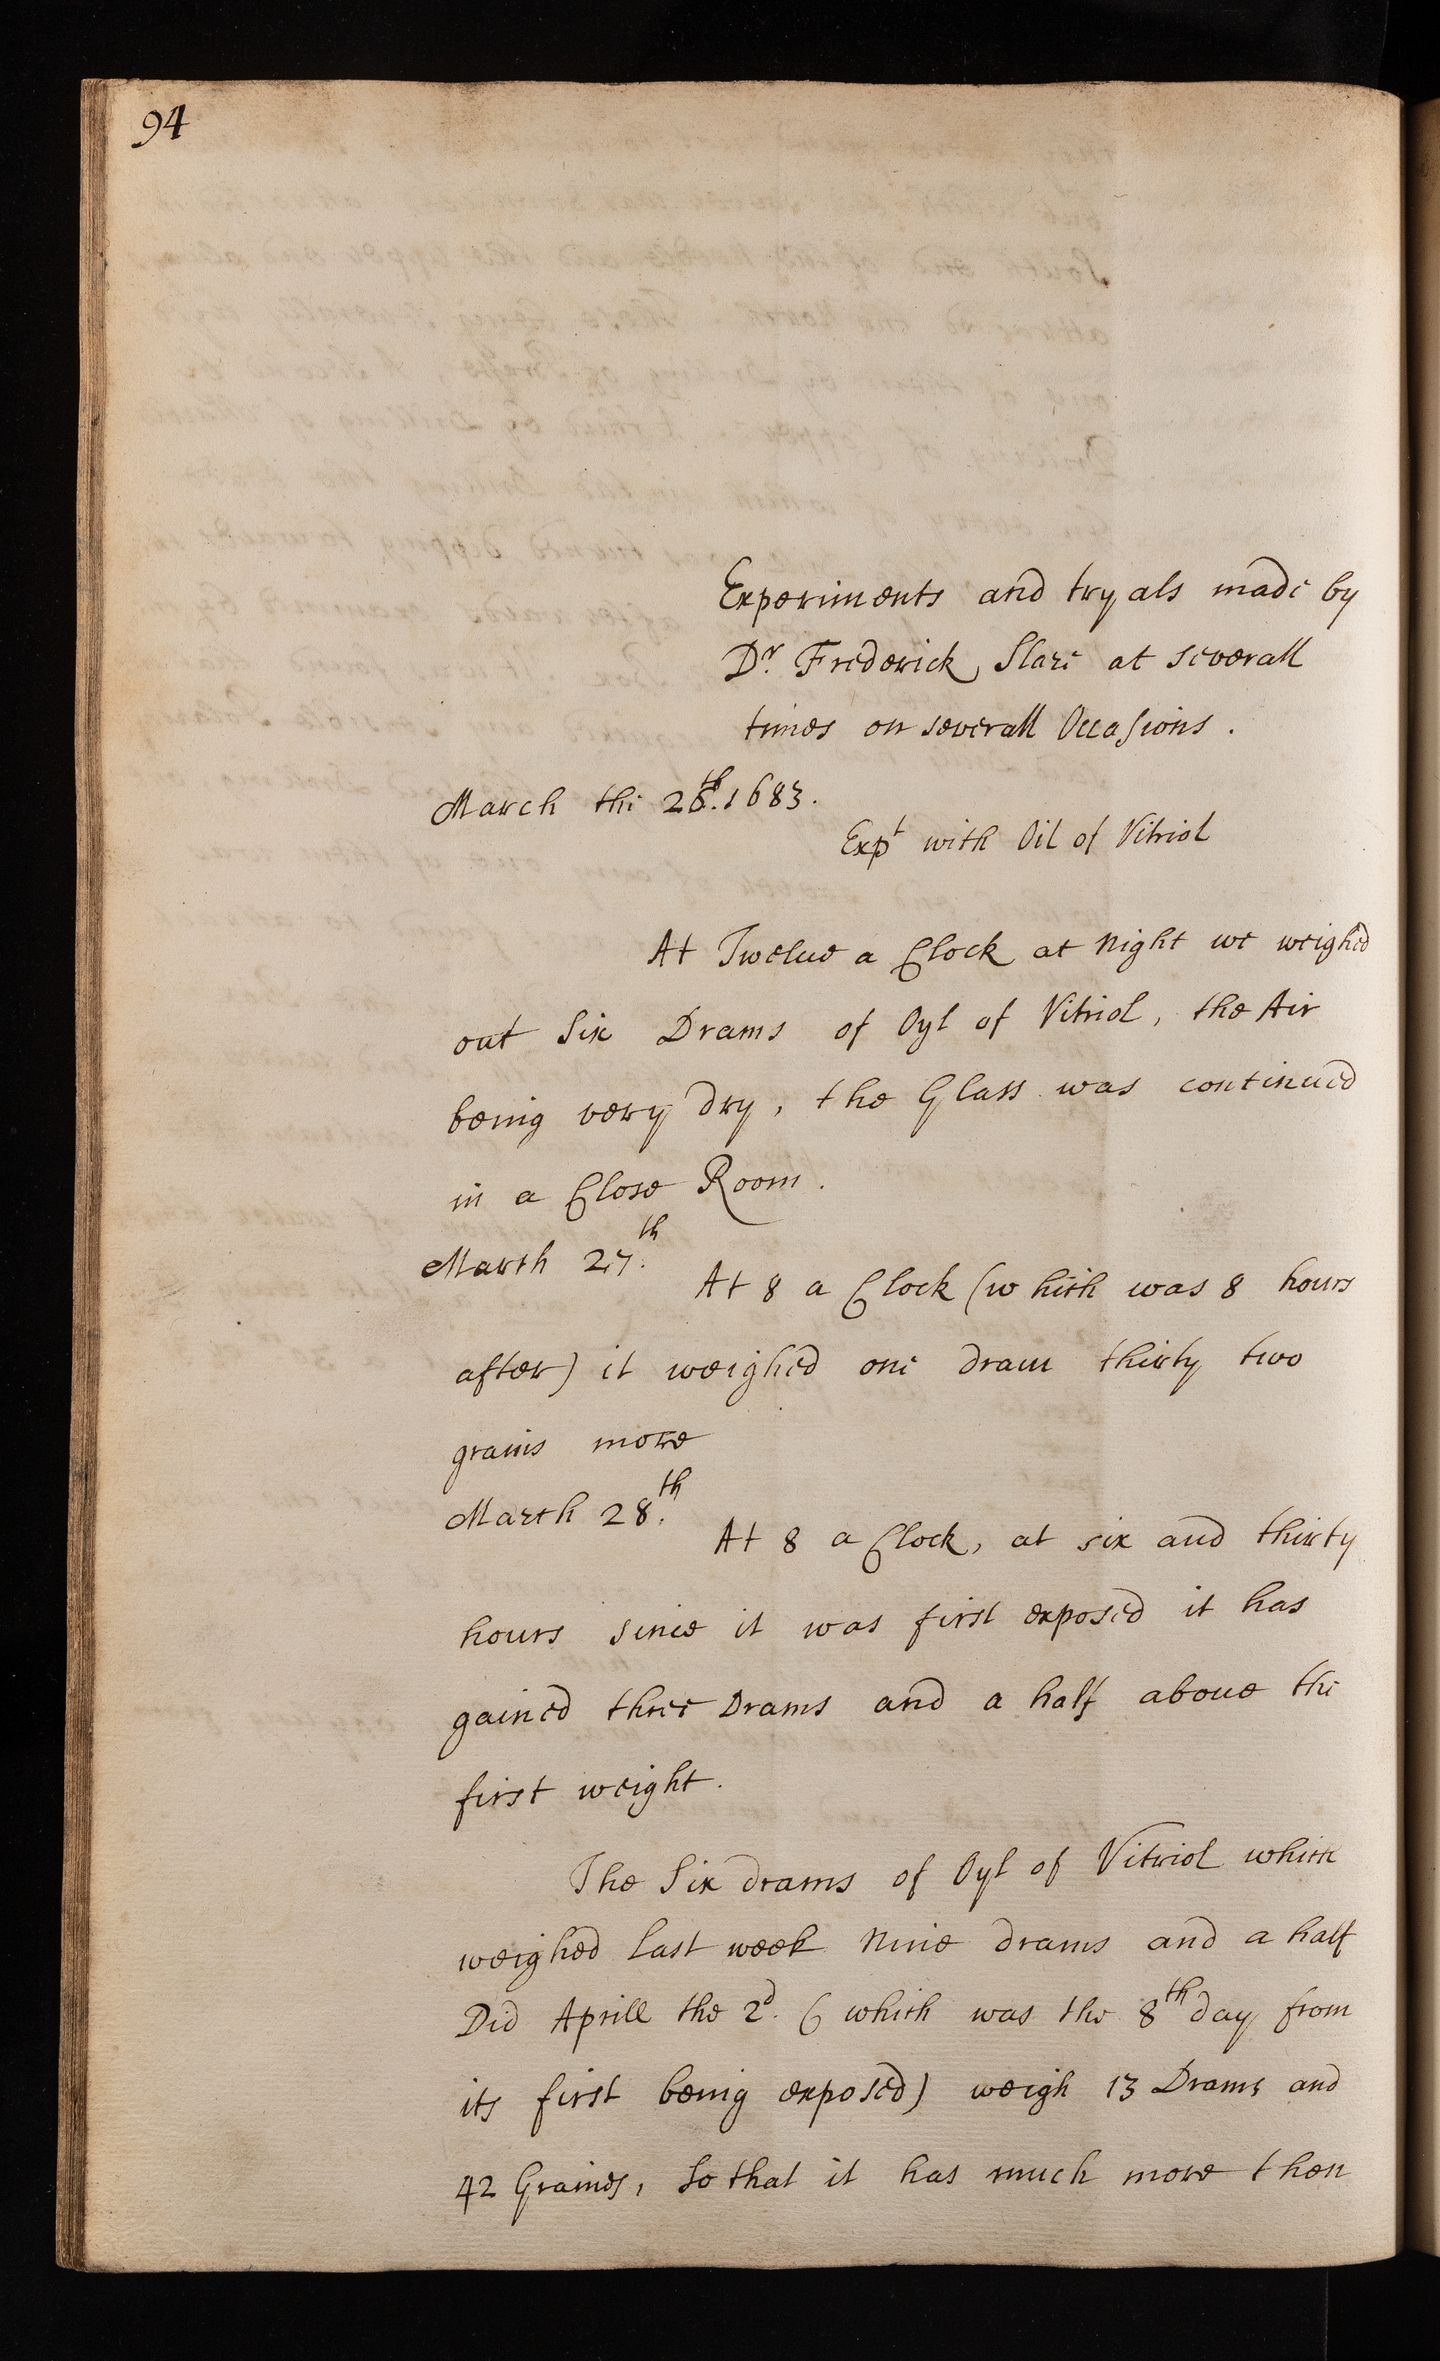 94
Experiments and tryals made by
Dr. Frederick Slare at severall
times on severall Occasions.
March the 26th. 1683.
Expt with Oil of Vitriol
At Twelve a Clock at night we weighed
out Six Drams of Oyl of Vitriol, the Air
being very dry, the Glass was continued
in a Close Room.
March 27th.
At 8 a Clock (which was 8 hours
after) it weighed one dram thirty two
grains more
March 28th.
At 8 a Clock, at six and thirty
hours since it was first exposed it has
gained three Drams and a half above the
first weight.
The Six drams of Oyl of Vitriol which
weighed last week Nine drams and a half
Did Aprill the 2d. (which was the 8th day from
its first being exposed) weigh 13 Drams and
42 Graines, So that it has much more then